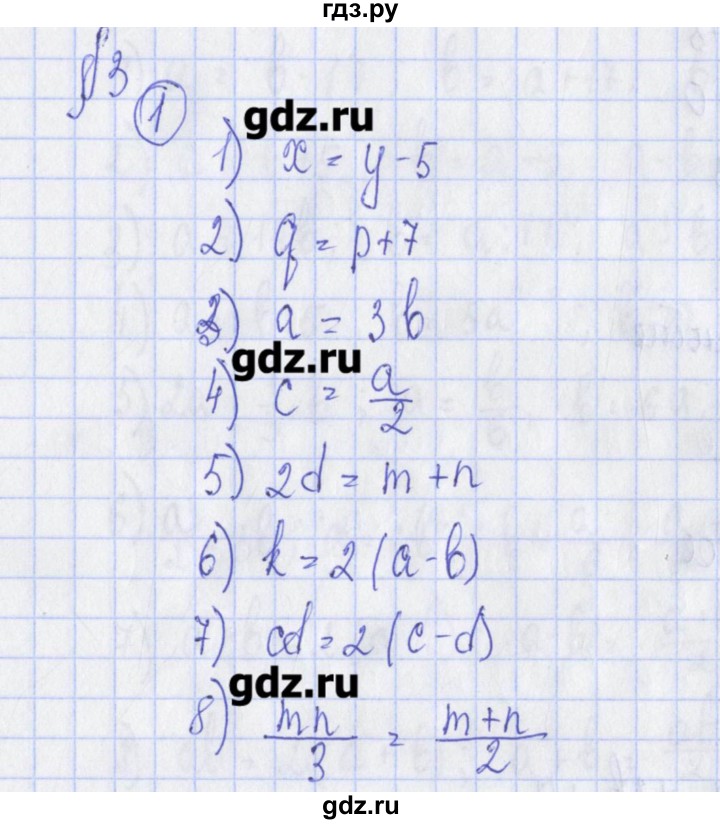 гдз.ру
§3
1
gdz.ru
1) x = y - 5
2) q = p + 7
3) a = 3b
gdz.ru
4) c = a/2
5) 2d = m + n
6) k = 2(a - b)
7) cd = 2(c - d)
gdz.ru
8) mn/3 = m + n/2
gdz.ru